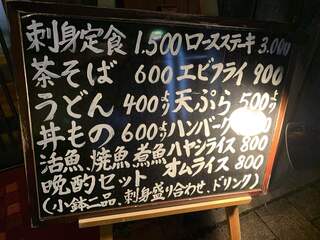 刺身定食 1.500 ロースステーキ 3.000
茶そば 600 エビフライ 900
うどん 400より 天ぷら 500より
丼もの 600より ハンバーグ
活魚、焼魚、煮魚 ハヤシライス 800
晩酌セット オムライス 800
(小鉢二品、刺身盛り合わせ、ドリンク)